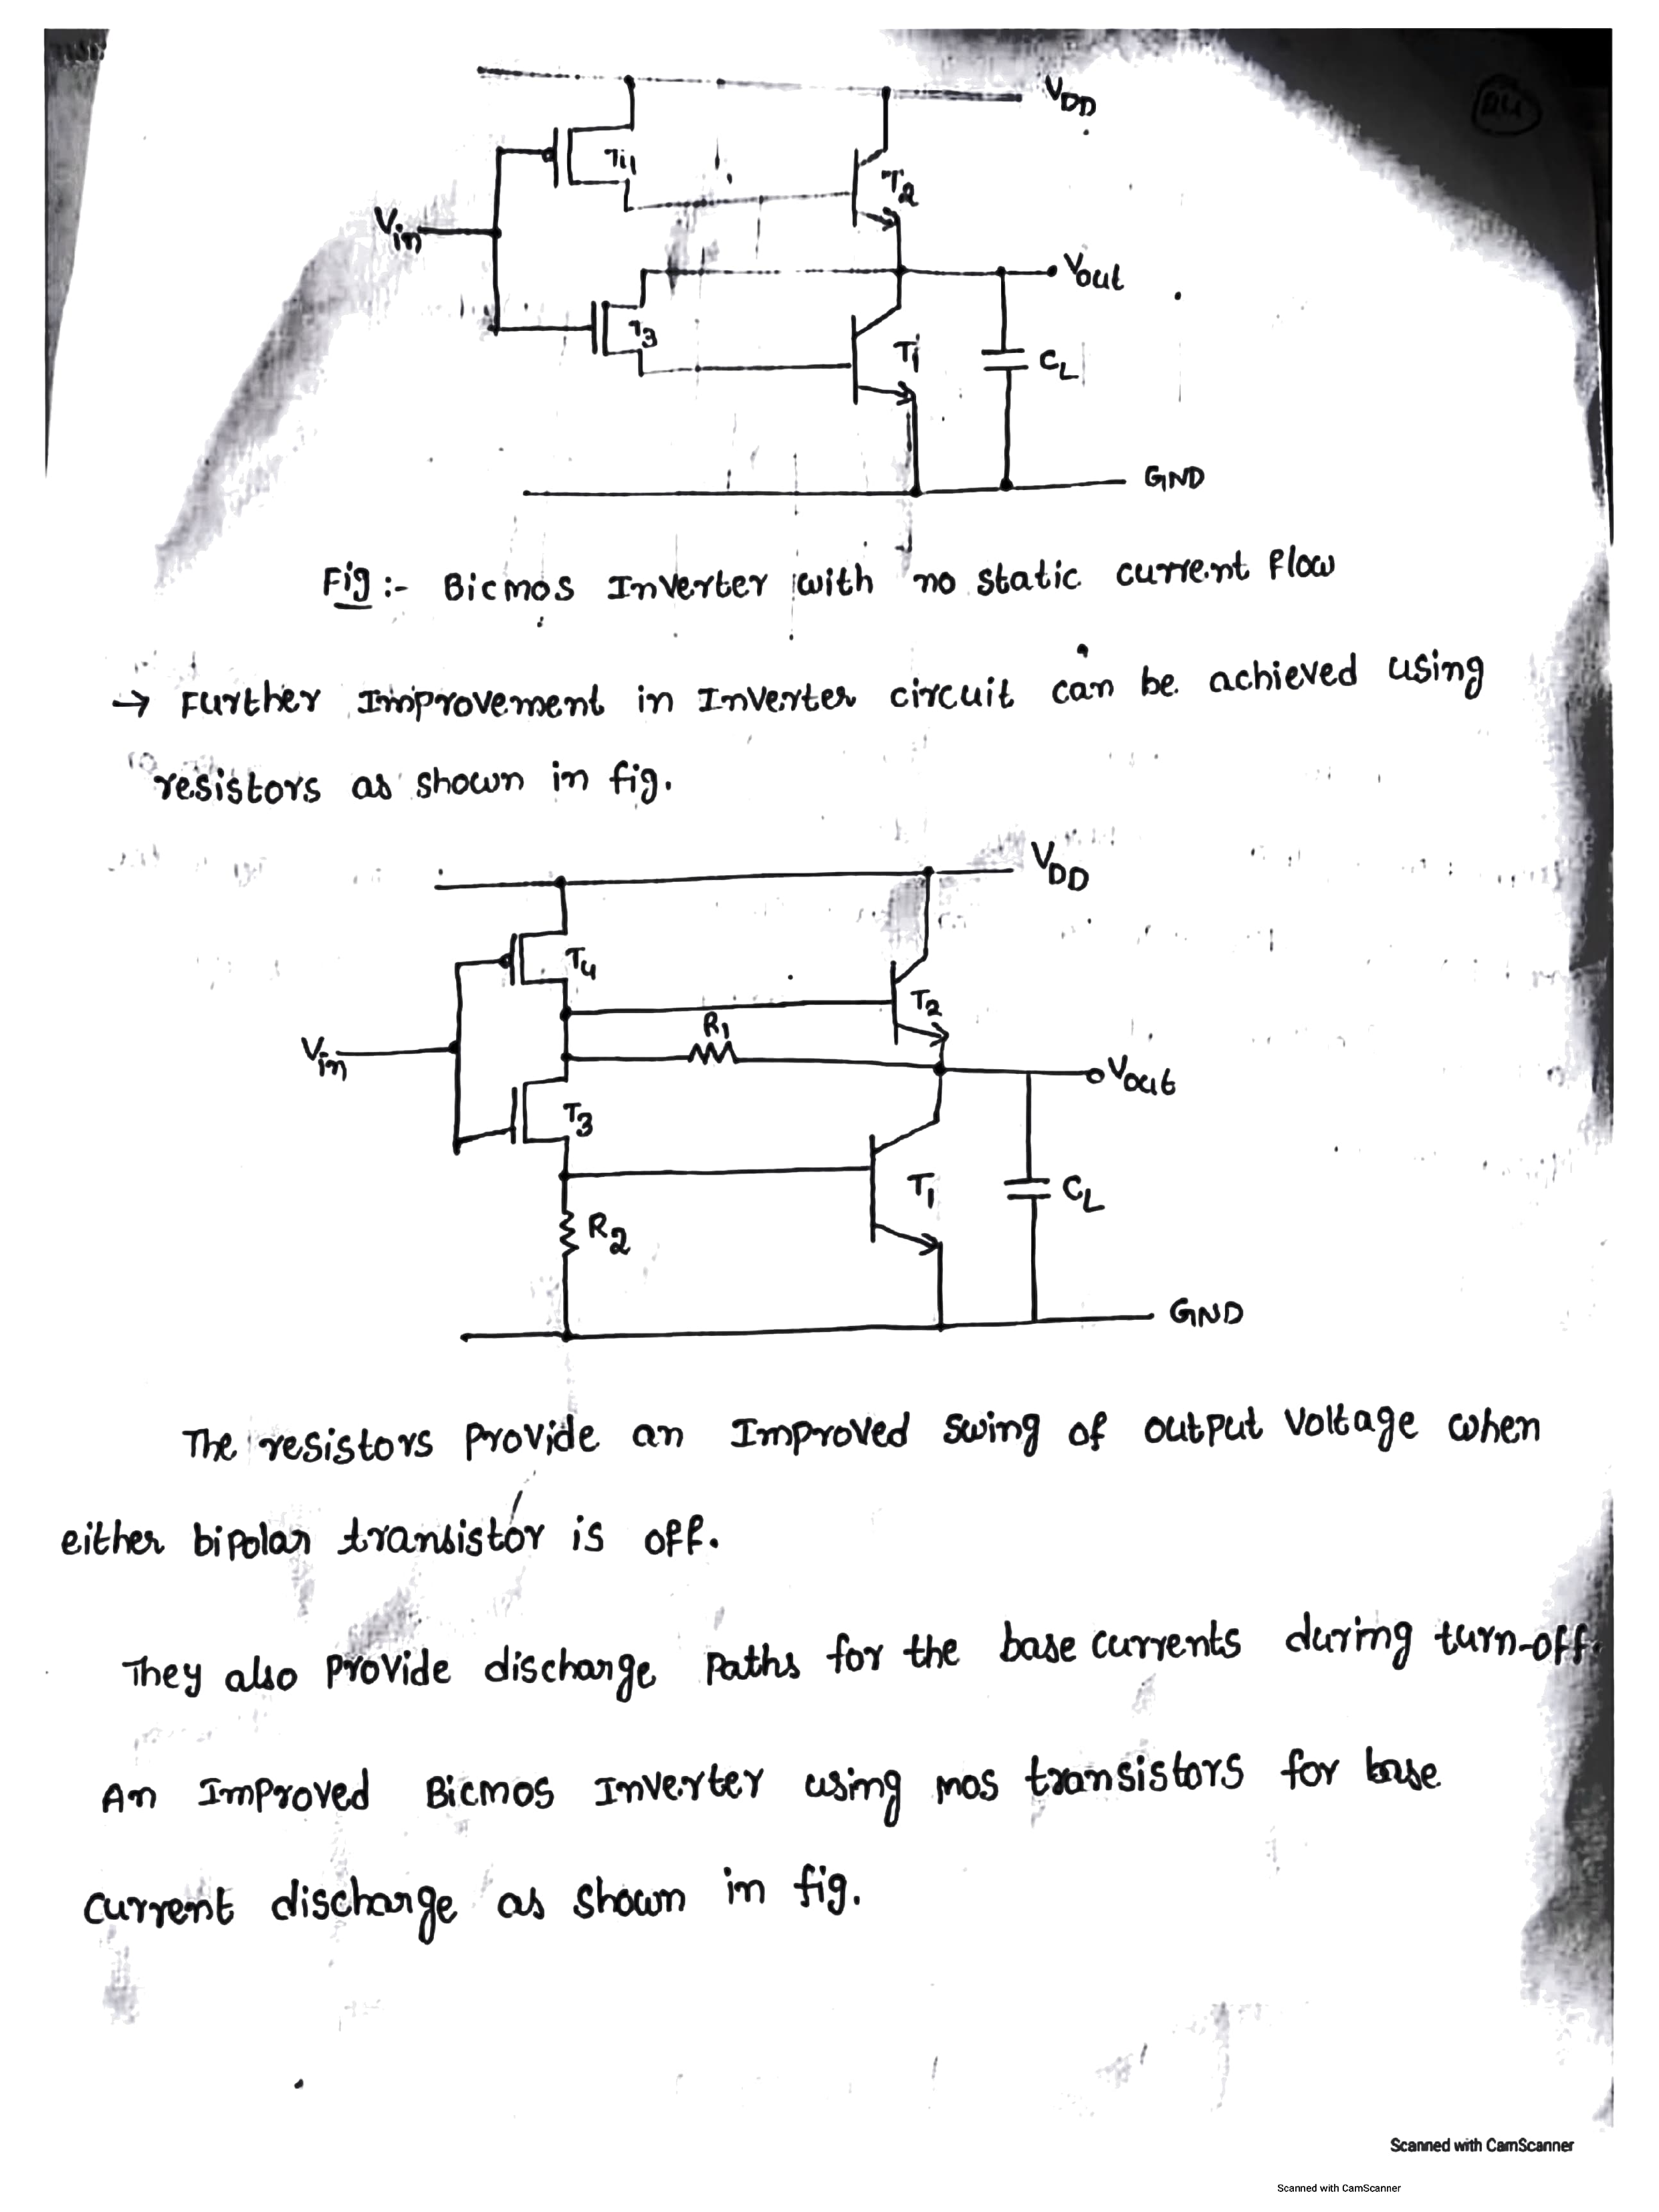 VDD
T2
Vin
T3
Vout
T1
CL
GND
Fig :- Bicmos Inverter with no static current flow
→ Further Improvement in Inverter circuit can be achieved using
resistors as shown in fig.
VDD
T4
T2
R1
Vin
Vout
T3
T1
CL
R2
GND
The resistors provide an Improved swing of output voltage when
either bipolar transistor is off.
They also provide discharge paths for the base currents during turn-off.
An Improved Bicmos Inverter using mos transistors for base
current discharge as shown in fig.
Scanned with CamScanner
Scanned with CamScanner